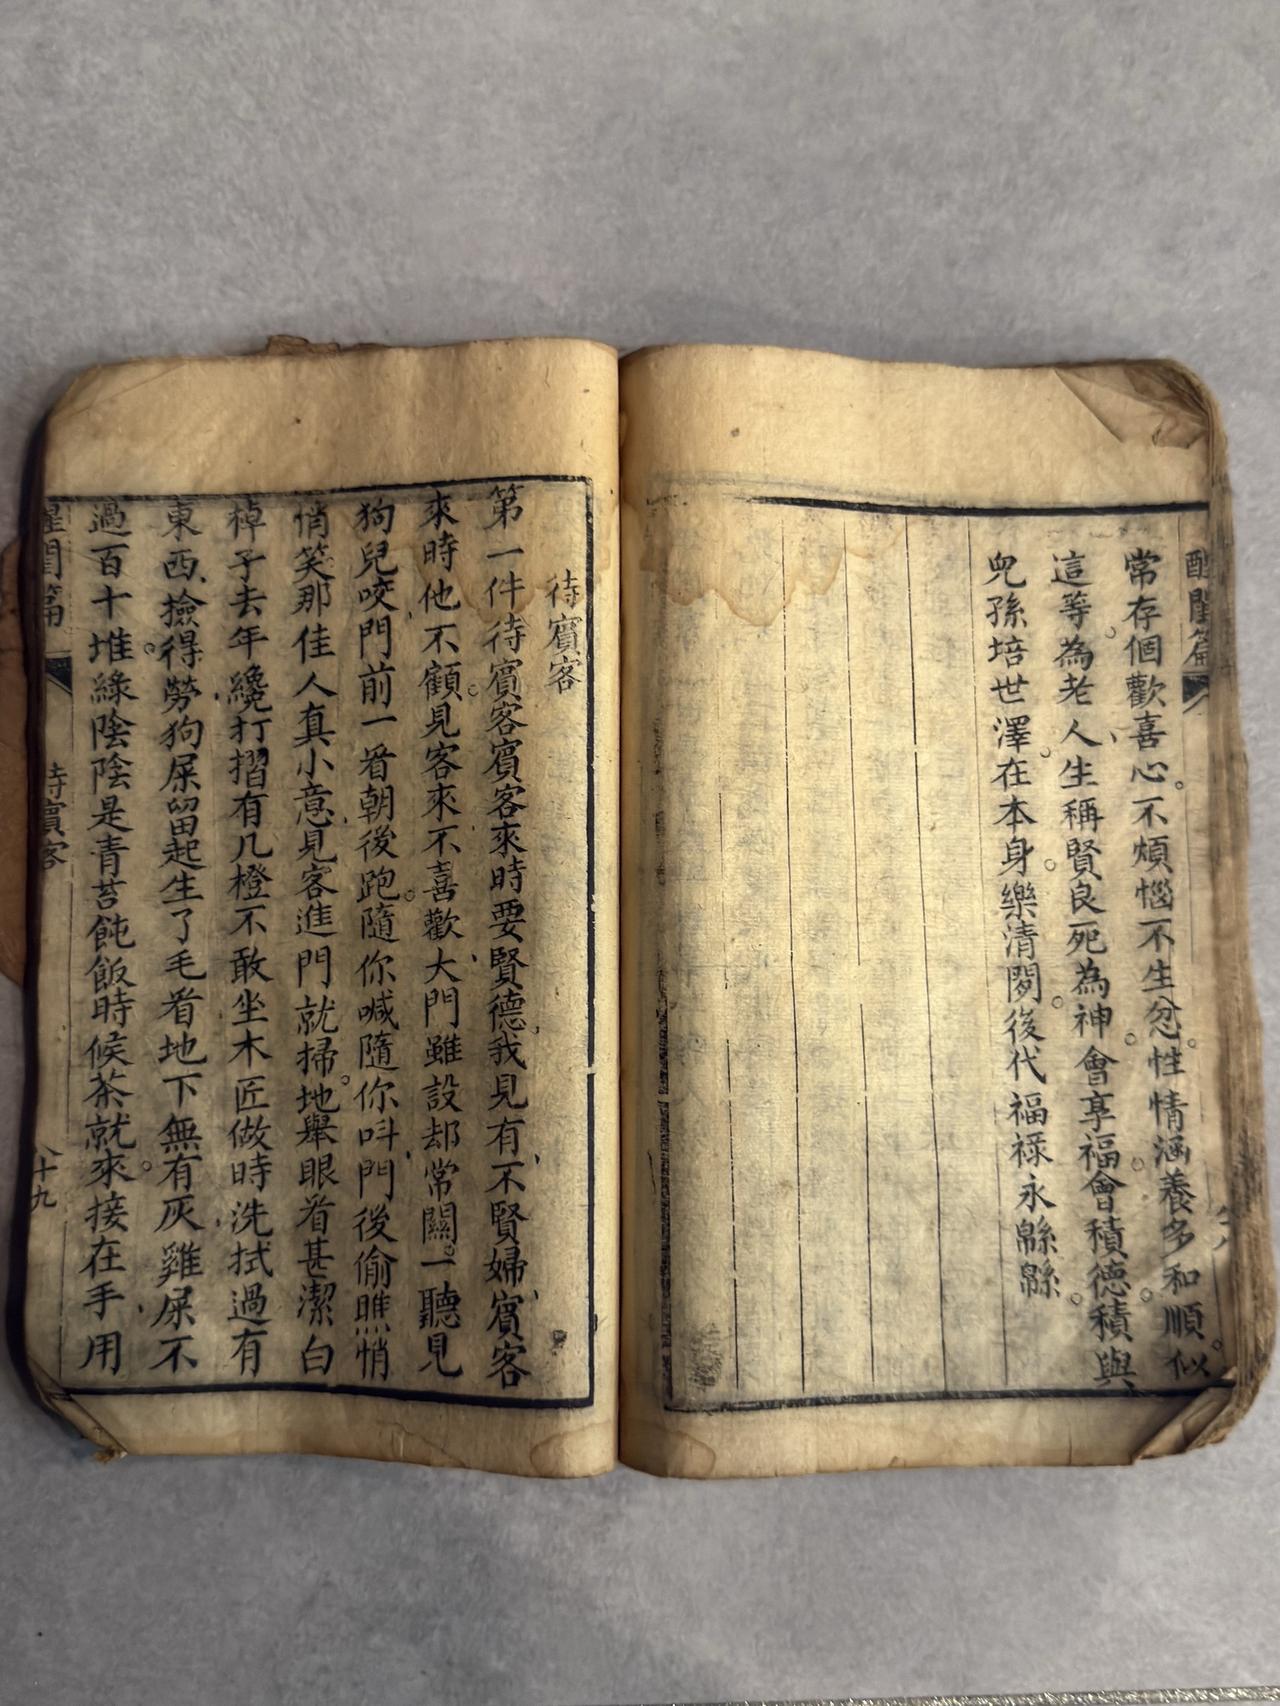 醒閨篇
常存個歡喜心。不煩惱不生忿。性情涵養多和順。似
這等。為老人、生稱賢良死為神。會享福。會積德。積與、
兒孫培世澤。在本身。樂清閒。後代福祿永綿綿。
待賓客
第一件待賓客賓客來時要賢德。我見有、不賢婦、賓客
來時、他不顧。見客來不喜歡、大門雖設却常關。一聽見
狗兒咬、門前一看朝後跑。隨你喊隨你呌、門後偷瞧悄
悄笑那佳人真小意、見客進門就掃地。舉眼看甚潔白
棹子去年纔打摺有几橙不敢坐木匠做時洗拭過有
東西、撿得勞、狗屎留起生了毛看地下無有灰、雞屎不
過百十堆。綠陰陰是青苔飩飯時候茶就來。接在手、用
醒閨篇
待賓客
十九